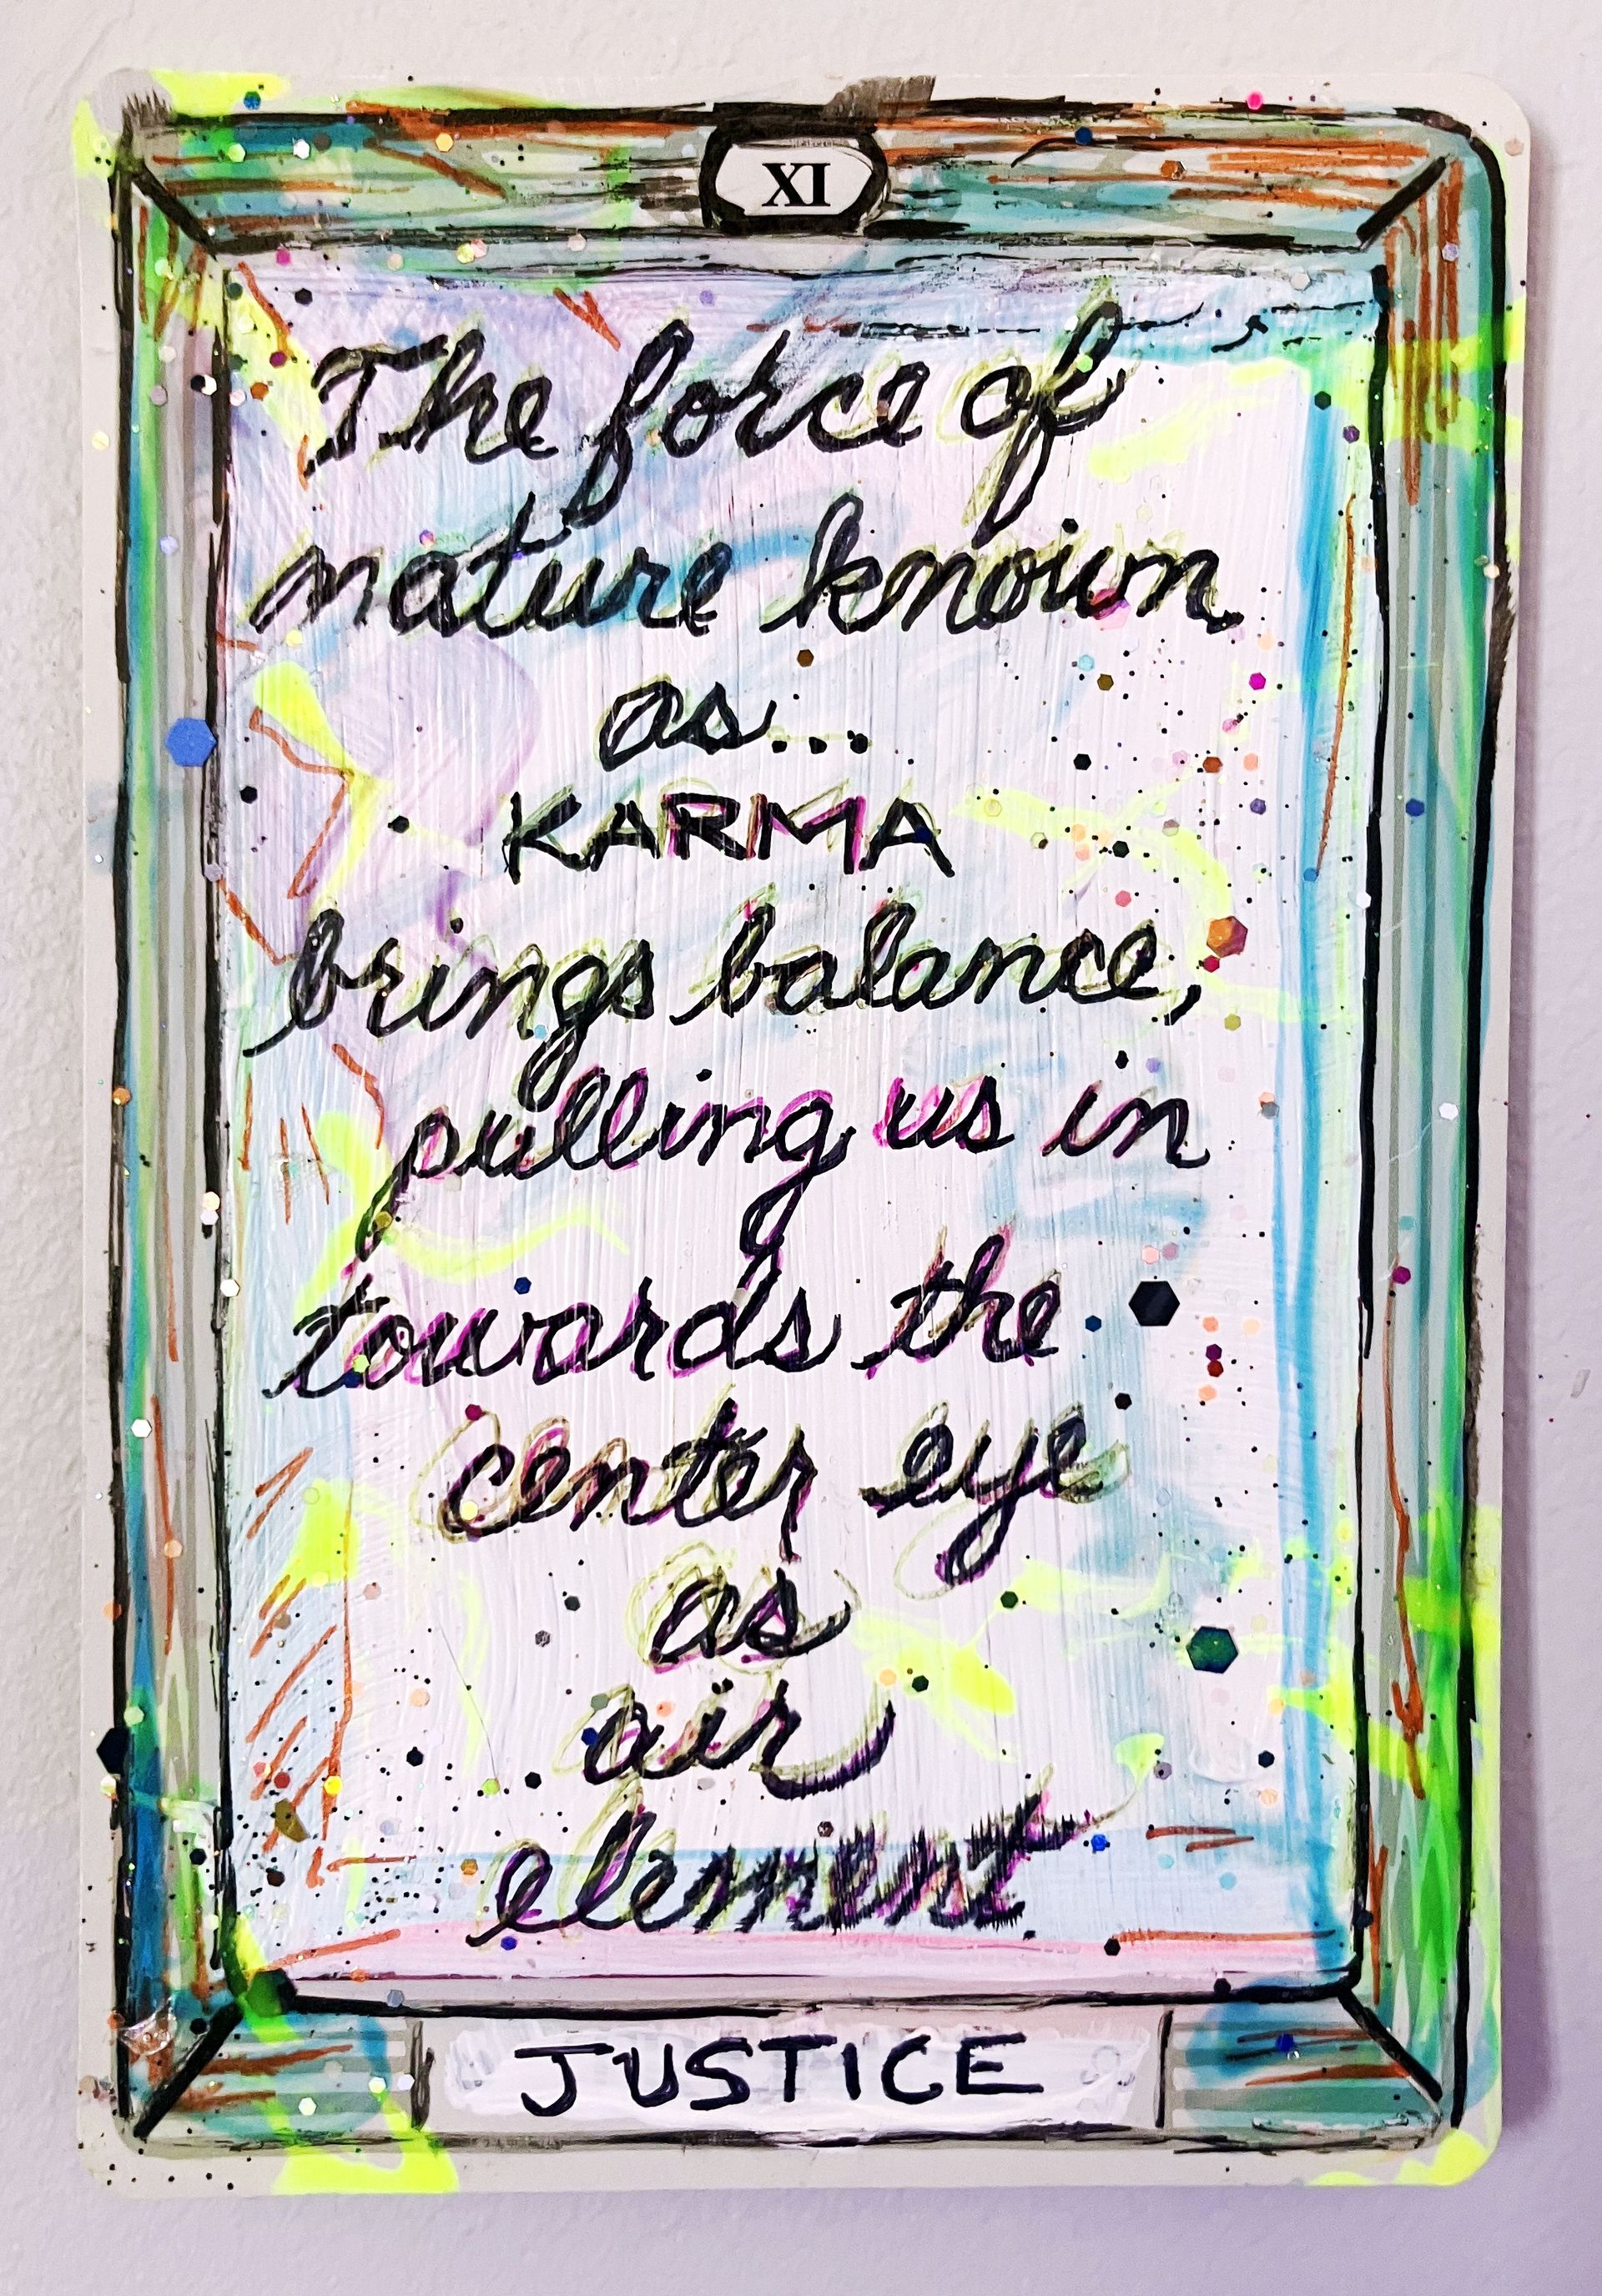 XI
The force of
nature known
as...
KARMA
brings balance,
pulling us in
towards the
center eye
as
air
element
JUSTICE